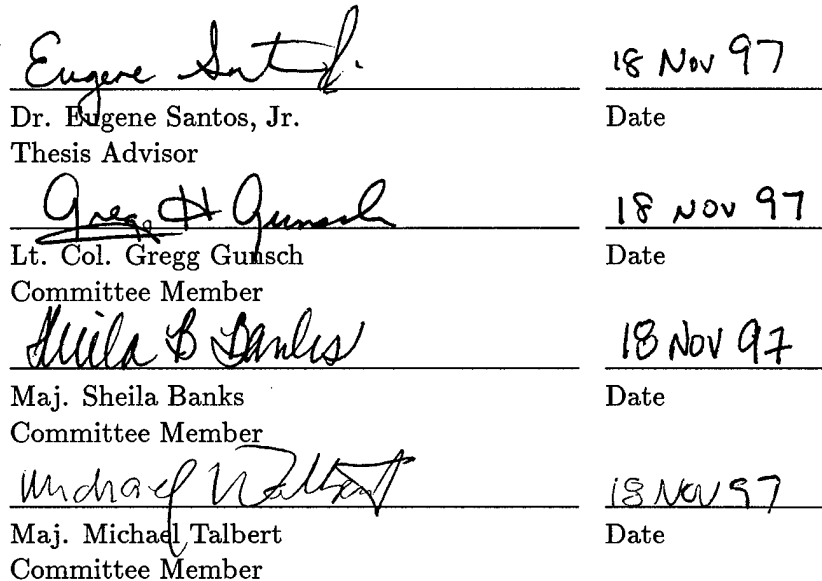 Eugene Santos Jr. 18 Nov 97
Dr. Eugene Santos, Jr. Date
Thesis Advisor
Gregg H Gunsch 18 Nov 97
Lt. Col. Gregg Gunsch Date
Committee Member
Sheila B Banks 18 Nov 97
Maj. Sheila Banks Date
Committee Member
Michael Talbert 18 Nov 97
Maj. Michael Talbert Date
Committee Member